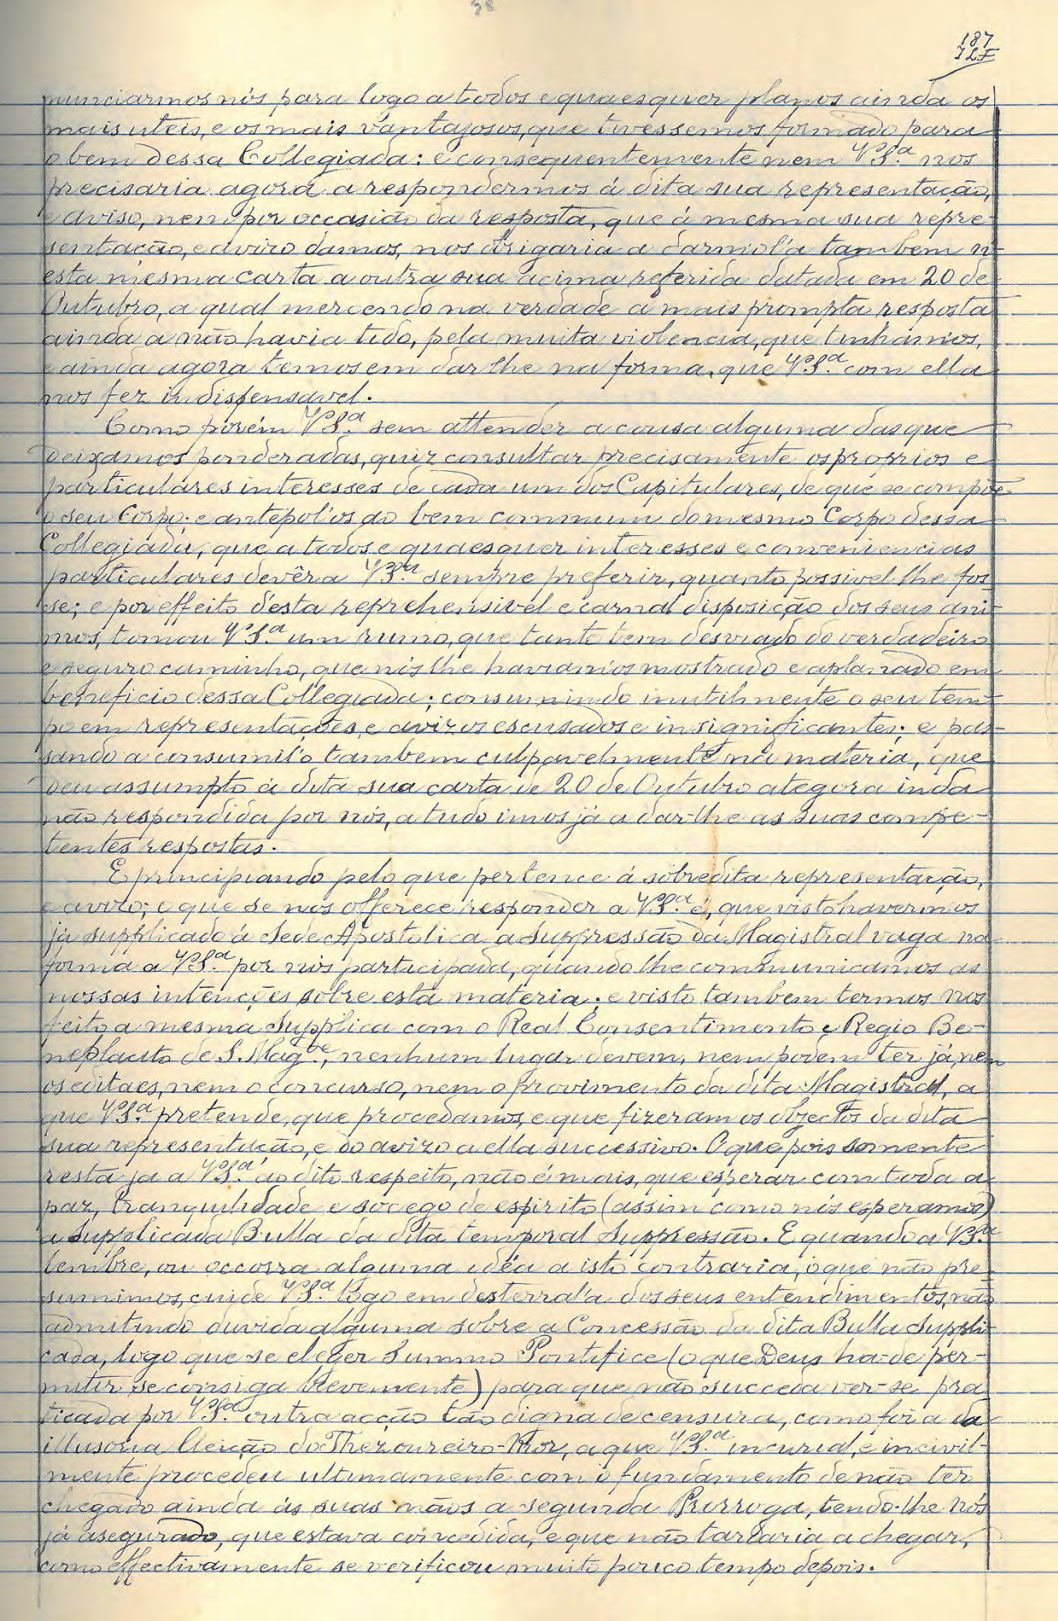 98
187
ILF
nunciarmos nós para logo a todos e quaesquer planos ainda os
mais uteis, e os mais vantajosos, que tivessemos formado para
o bem dessa Collegiada: e consequentemente nem V.S.ª nos
precisaria agora a respondermos á dita sua representação,
e aviso, nem por occasião da resposta, que á mesma sua repre-
sentação, e avizo damos, nos obrigaria a darmol'a tambem n-
esta mesma carta a outra sua acima referida datada em 20 de
Outubro, a qual mercendo na verdade a mais prompta resposta
ainda a não havia tido, pela muita violencia, que tinhamos,
e ainda agora temos em dar lhe na forma, que V.S.ª com ella
nos fez indispensavel.
Como porém V.S.ª sem attender a cousa alguma das que
deixamos ponderadas, quiz consultar precisamente os proprios e
particulares interesses de cada um dos Capitulares, de que se compõe
o seu Corpo; e antepol'os ao bem commum do mesmo Corpo dessa
Collegiada, que a todos e quaesquer interesses e conveniencias
particulares devêra V.S.ª sempre preferir, quanto possivel lhe fos-
se; e por effeito d'esta reprehensivel e carnal disposição dos seus ani-
mos, tomou V.S.ª um rumo, que tanto tem desviado do verdadeiro
e seguro caminho, que nós lhe haviamos mostrado e aplanado em
beneficio dessa Collegiada; consumindo inutilmente o seu tem-
po em representações, e avizos escusados e insignificantes; e pas-
sando a consumil'o tambem culpavelmente na materia, que
deu assumpto á dita sua carta de 20 de Outubro ategora inda
não respondida por nós, a tudo imos já a dar-lhe as suas compe-
tentes respostas.
E principiando pelo que pertence á sobredita representação,
e avizo; o que se nos offerece responder a V.S.ª é, que visto havermos
já supplicado á Sede Apostolica a Suppressão da Magistral vaga na
forma a V.S.ª por nós participada, quando lhe communicamos as
nossas intenções sobre esta materia: e visto tambem termos nós
feito a mesma Supplica com o Real Consentimento e Regio Be-
neplacito de S. Mag.de, nenhum lugar devem, nem podem ter já, nem
os editaes, nem o concurso, nem o provimento da dita Magistral, a
que V.S.ª pretende, que procedamos, e que fizeram os objectos da dita
sua representação, e do avizo a ella successivo. O que pois somente
resta já a V.S.ª ao dito respeito, não é mais, que esperar com toda a
paz, tranquilidade e socego de espirito (assim como nós esperamos)
a Supplicada Bulla da dita temporal Suppressão. E quando a V.S.ª
lembre, ou occorra alguma idéa a isto contraria, o que não pre-
sumimos, cuide V.S.ª logo em desterral'a dos seus entendimentos, não
admitindo duvida alguma sobre a Concessão da dita Bulla Suppli-
cada, logo que se eleger Summo Pontifice (o que Deus ha-de per-
mitir se consiga brevemente) para que não succeda ver-se pra-
ticada por V.S.ª outra acção tão digna de censura, como foi a da
illusoria Eleição do Thezoureiro-Mor, a que V.S.ª incurial, e incivil-
mente procedeu ultimamente com o fundamento de não ter
chegado ainda ás suas mãos a segunda Prorroga, tendo-lhe nós
já asegurado, que estava concedida, e que não tardaria a chegar,
como effectivamente se verificou muito pouco tempo depois.